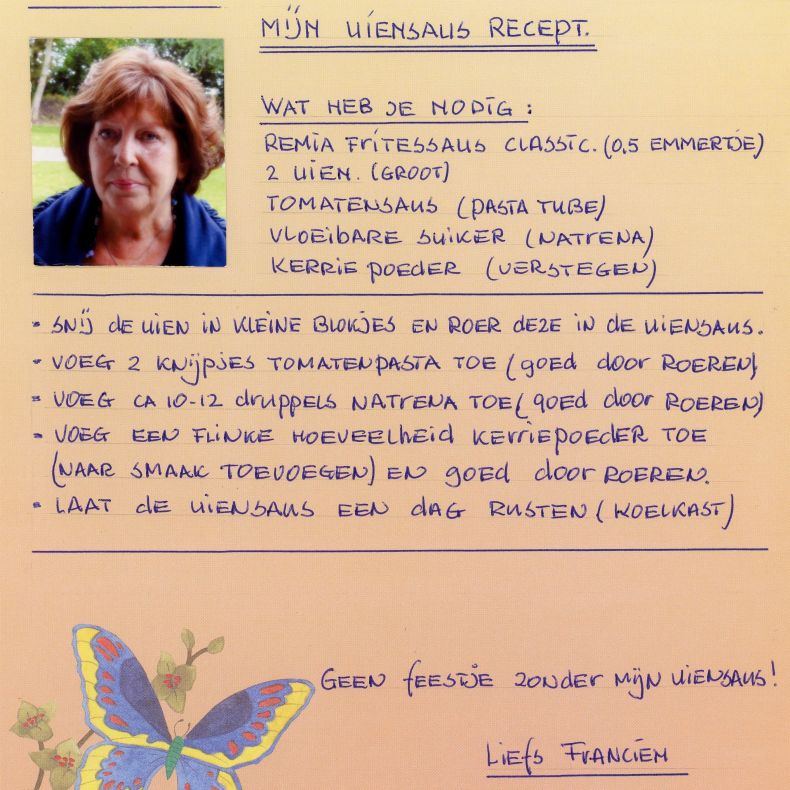 MIJN UIENSAUS RECEPT.
WAT HEB JE NODIG :
REMIA FRITESSAUS CLASSIC. (0,5 EMMERTJE)
2 UIEN. (GROOT)
TOMATENSAUS (PASTA TUBE)
VLOEIBARE SUIKER (NATRENA)
KERRIE POEDER (VERSTEGEN)
- SNIJ DE UIEN IN KLEINE BLOKJES EN ROER DEZE IN DE UIENSAUS.
- VOEG 2 KNIJPJES TOMATENPASTA TOE (goed door ROEREN)
- VOEG CA 10-12 druppels NATRENA TOE (goed door ROEREN)
- VOEG EEN FLINKE HOEVEELHEID KERRIEPOEDER TOE
(NAAR SMAAK TOEVOEGEN) EN goed door ROEREN.
- LAAT DE UIENSAUS EEN DAG RUSTEN (KOELKAST)
GEEN FEESTJE ZONDER MIJN UIENSAUS!
LIEFS FRANCIEN